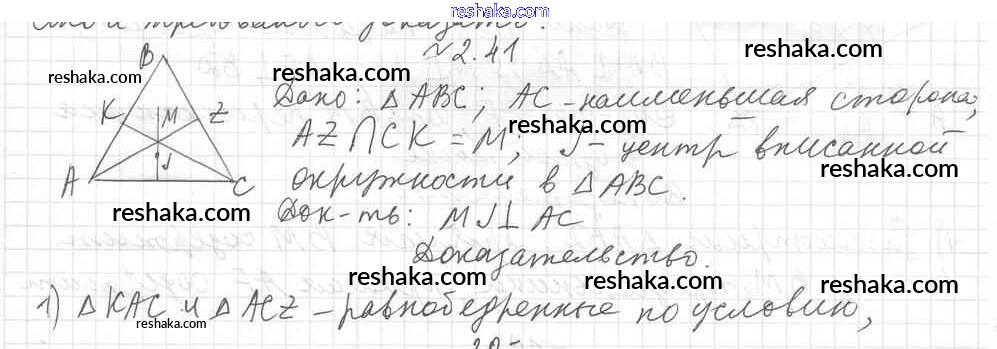 reshaka.com
доказать.
№2.41
reshaka.com
B
reshaka.com
reshaka.com
K M Z
Дано: △ABC; AC-наименьшая сторона;
reshaka.com
AZ∩CK = M; J- центр вписанной
reshaka.com
A J C
окружности в △ABC.
reshaka.com
Док-ть: MJ⊥AC
reshaka.com
Доказательство.
reshaka.com
reshaka.com
1) △KAC и △ACZ -равнобедренные по условию,
reshaka.com